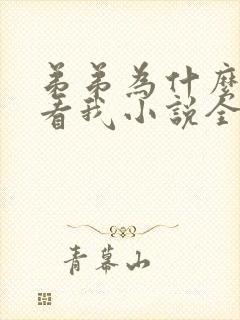 弟弟為什麼
看我小說全
青幕山